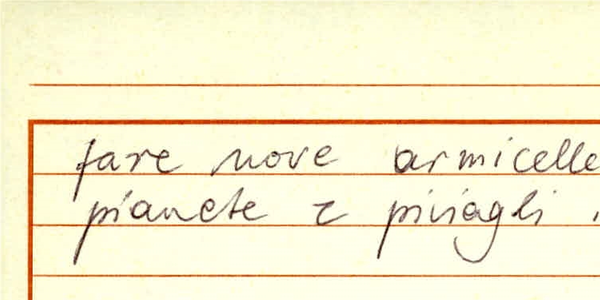 fare nove armicelle
pianete e piviagli